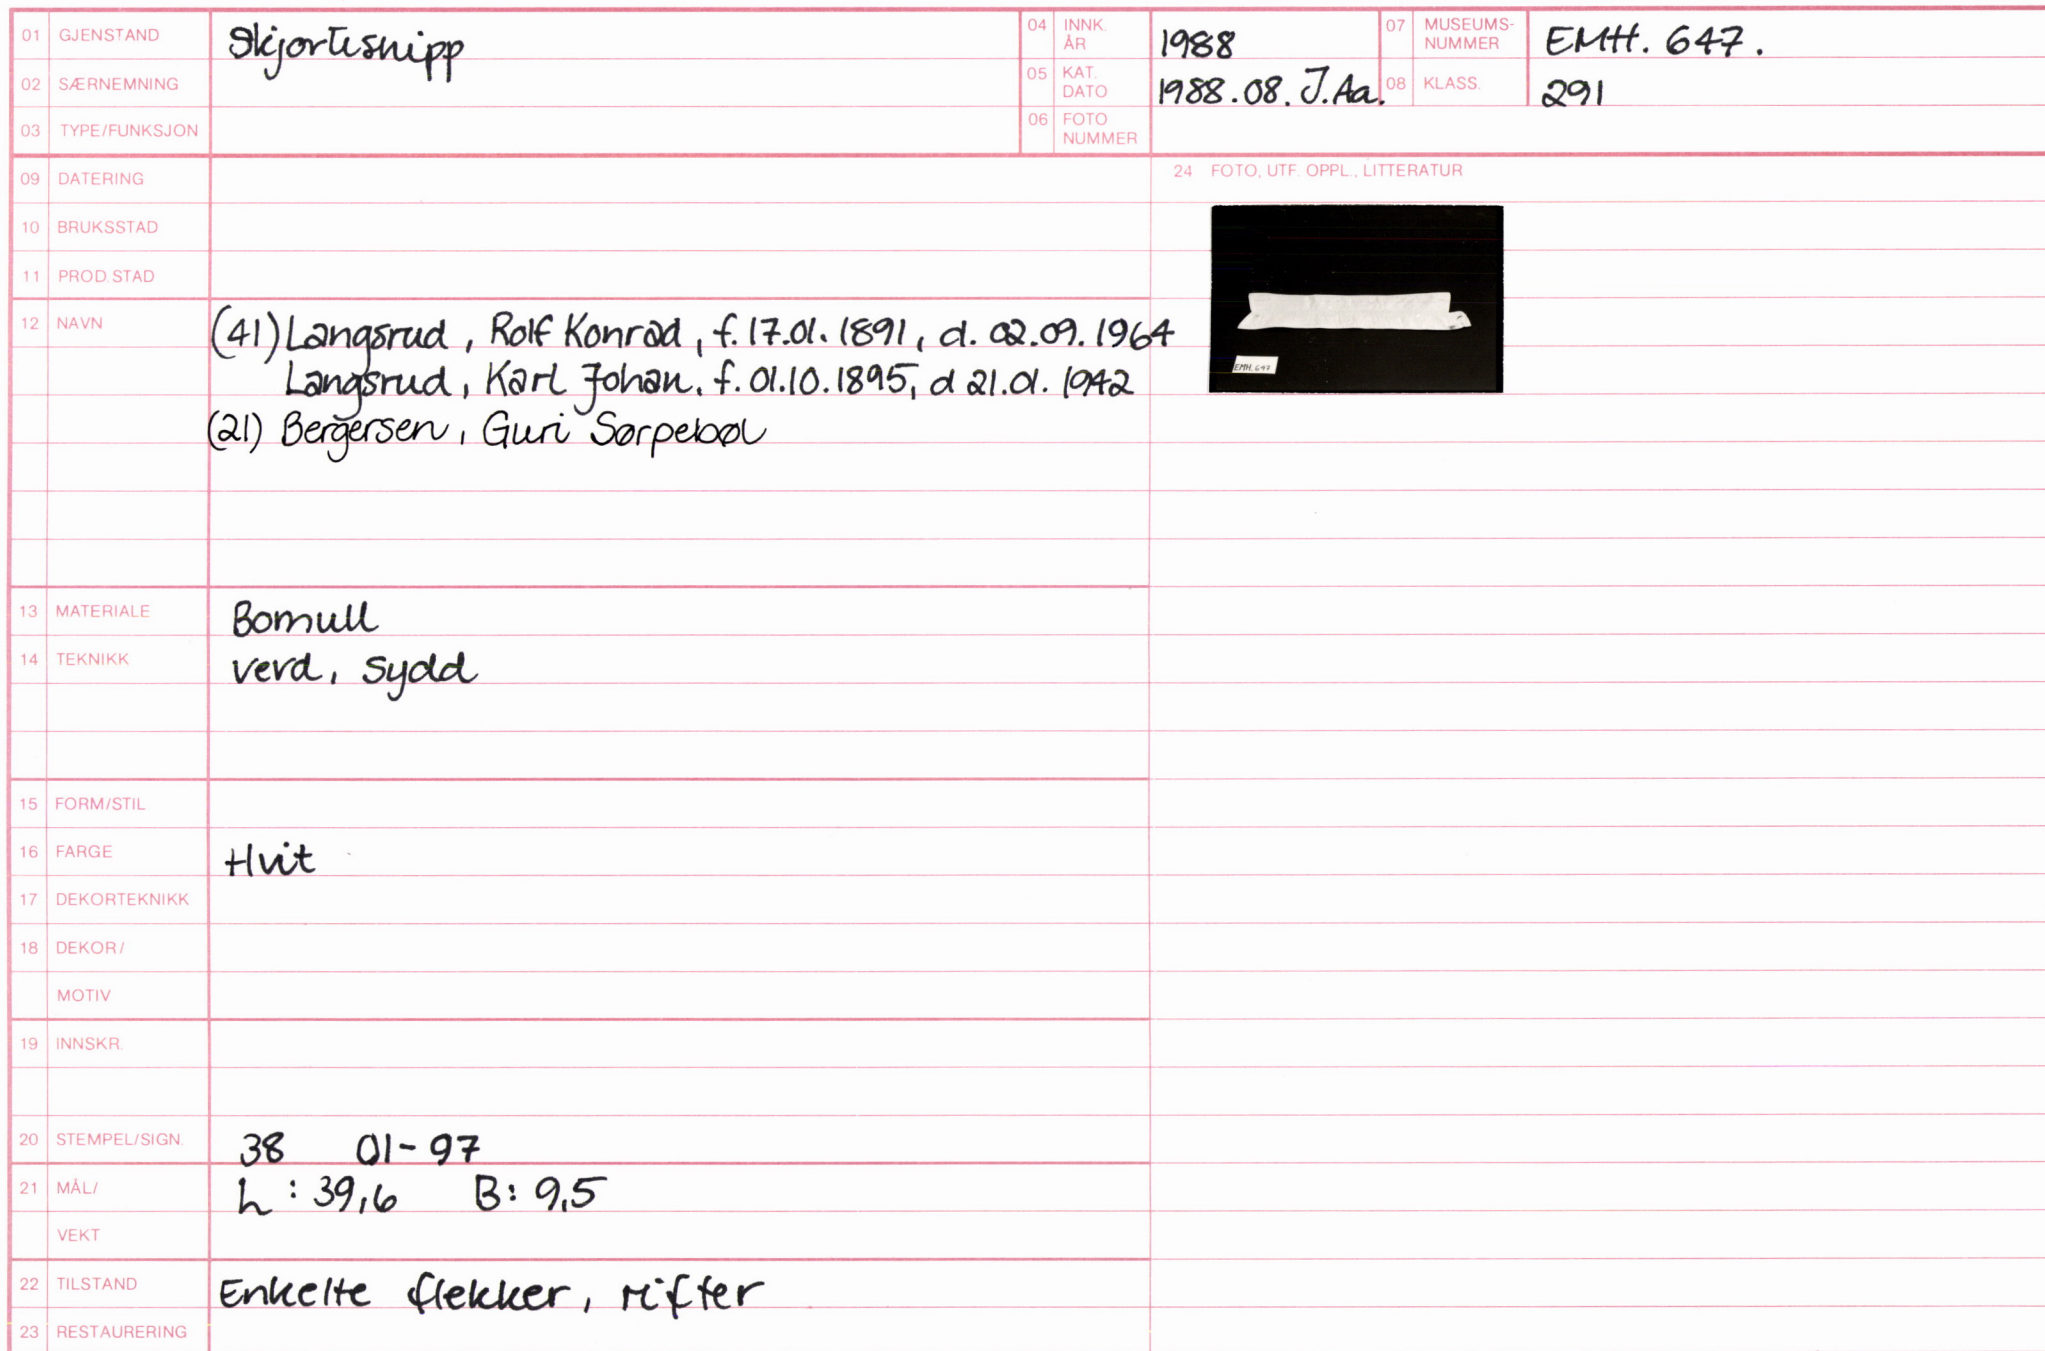 01 GJENSTAND Skjortesnipp
02 SÆRNEMNING
03 TYPE/FUNKSJON
04 INNK. ÅR 1988
05 KAT. DATO 1988.08. J.Aa.
06 FOTO NUMMER
07 MUSEUMS-NUMMER EMH. 647.
08 KLASS. 291
09 DATERING
10 BRUKSSTAD
11 PROD.STAD
12 NAVN (41) Langsrud, Rolf Konrad, f. 17.01.1891, d. 02.09.1964
Langsrud, Karl Johan. f. 01.10.1895, d 21.01.1942
(21) Bergersen, Guri Sørpebøl
13 MATERIALE Bomull
14 TEKNIKK Verd, Sydd
15 FORM/STIL
16 FARGE Hvit
17 DEKORTEKNIKK
18 DEKOR/
MOTIV
19 INNSKR.
20 STEMPEL/SIGN. 38 01-97
21 MÅL/ L: 39,6 B: 9,5
VEKT
22 TILSTAND Enkelte flekker, rifter
23 RESTAURERING
24 FOTO, UTF. OPPL., LITTERATUR
EMH. 647